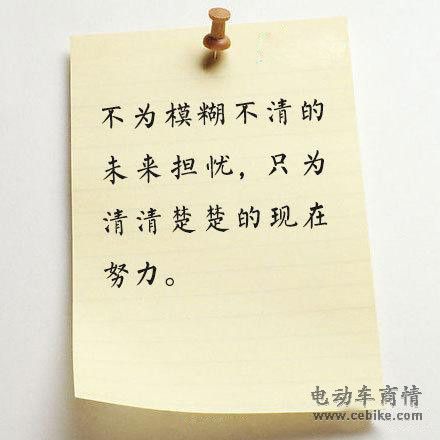 不为模糊不清的
未来担忧，只为
清清楚楚的现在
努力。
电动车商情
www.cebike.com